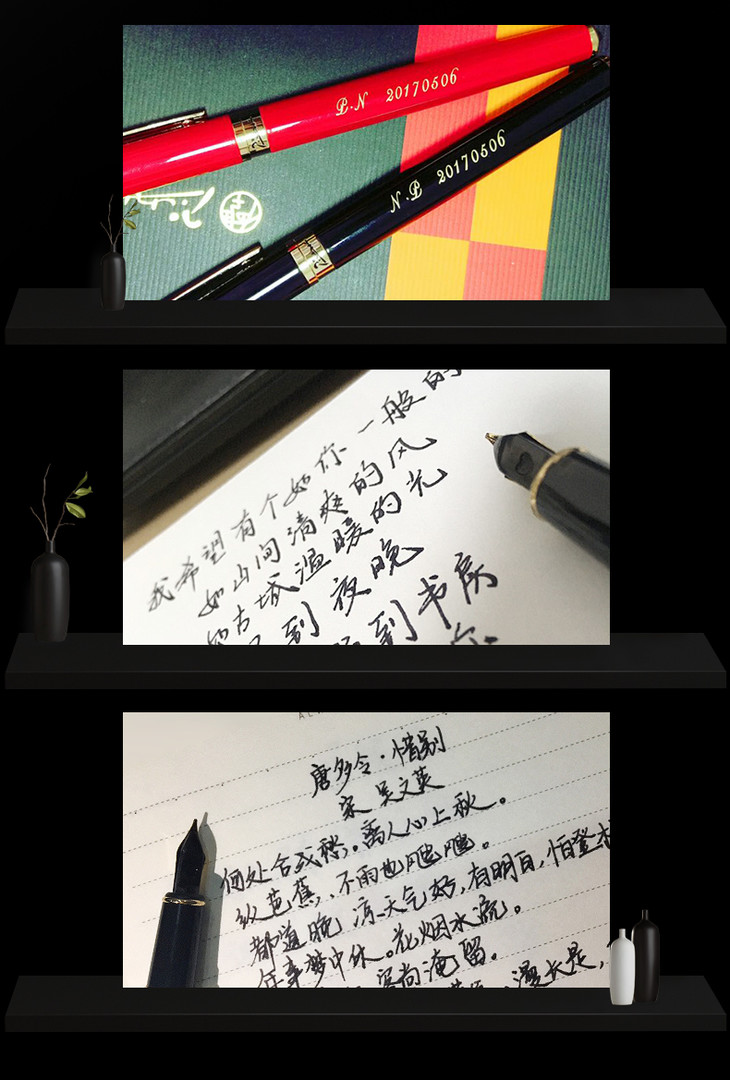 P·N 20170506
N·P 20170506
我希望有个如你一般的
如山间清爽的风
如古城温暖的光
到夜晚
到书房
你
唐多令·惜别
宋 吴文英
何处合成愁。离人心上秋。
纵芭蕉、不雨也飕飕。
都道晚凉天气好,有明月,怕登
年事梦中休。花烟水流。
尚淹留。
漫长是,